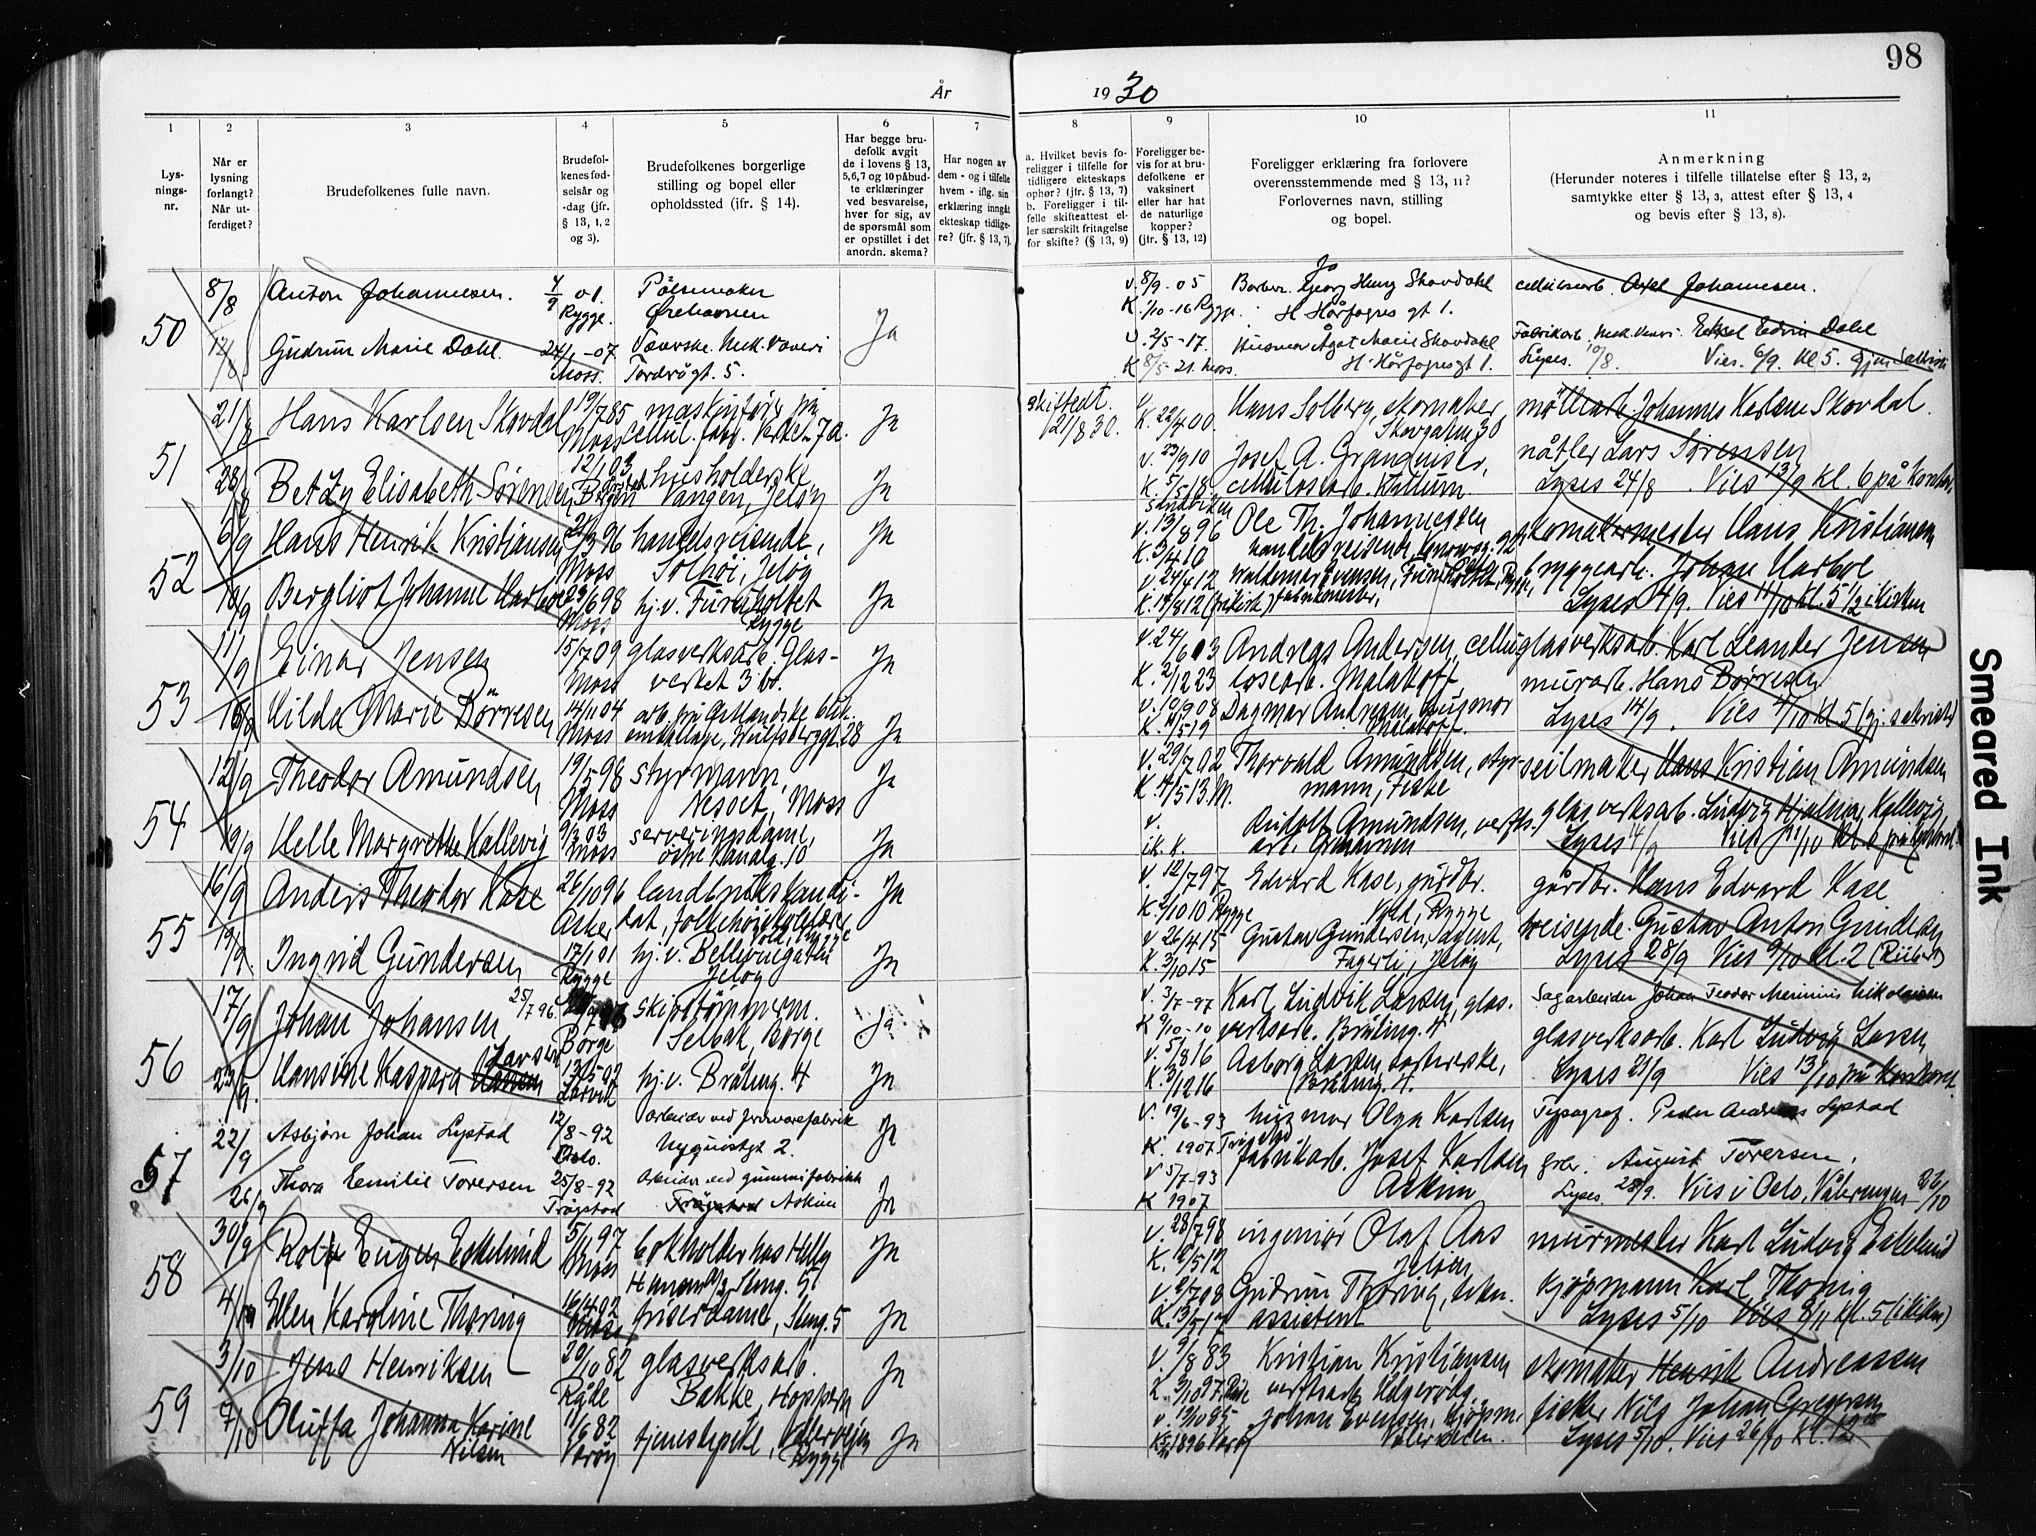 98
År 1930
1 2 3 4 5 6 7 8 9 10 11
Lys-
nings-
nr.
Når er
lysning
forlangt?
Når ut-
ferdiget?
Brudefolkenes fulle navn.
Brudefol-
kenes fød-
selsår og
-dag (jfr.
§ 13, 1, 2
og 3).
Brudefolkenes borgerlige
stilling og bopel eller
opholdssted (jfr. § 14).
Har begge bru-
defolk avgit
de i lovens § 13,
5,6,7 og 10 påbud-
te erklæringer
ved besvarelse,
hver for sig, av
de spørsmål som
er opstillet i det
anordn. skema?
Har nogen av
dem - og i tilfelle
hvem - iflg. sin
erklæring inngått
ekteskap tidlige-
re? (jfr. § 13, 7)
a. Hvilket bevis fo-
religger i tilfelle for
tidligere ekteskaps
ophør? (jfr. § 13, 7)
b. Foreligger i til-
felle skifteattest el-
ler særskilt fritagelse
for skifte? (§ 13, 9)
Foreligger be-
vis for at bru-
defolkene er
vaksinert
eller har hat
de naturlige
kopper?
(jfr. § 13, 12)
Foreligger erklæring fra forlovere
overensstemmende med § 13, 11?
Forlovernes navn, stilling
og bopel.
Anmerkning
(Herunder noteres i tilfelle tillatelse efter § 13, 2,
samtykke efter § 13, 3, attest efter § 13, 4
og bevis efter § 13, 8).
50
8/8 Anton Johannesen. 4/9 01. Pölsemaker Ja
Rygge.
12/8 Gudrun Marie Dahl. 24/1 -07. Væverske. Mek. Væveri
Moss. Tordrögt. 5.
v. 8/9 -05 Barber. Georg Henry Skovdahl
K. 1/10 -16 Rygge. H. Hårfagres gt 1.
v. 2/5 -17. Husmor Ågot Marie Skovdahl
K 8/5 -21. Moss. H. Hårfagresgt 1.
cellulosearb. Axel Johannesen.
Fabrikarb. Edvin Dahl
Lyses. 10/8. Vies. 6/9. kl 5.
51
21/8 Hans Karlsen Skovdal 19/7 85 maskinfører på Ja
Moss cellul. fabr. Verket 7a.
28/8 Betzy Elisabeth Sørensen 12/1 03 husholderske Ja
Vangen, Jeløy
Skifteatt.
21/8 30.
K. 22/4 00 Hans Solberg, skomaker,
Skovgaten 30
v. 23/9 10 Josef A. Granquist,
K. 5/5 18 cellulosearb. Kallum.
møllearb. Johannes Karlsen Skovdal.
nåtler Lars Sørensen
Lyses 24/8. Vies 13/9 kl. 6 på Kontoret
52
6/9 Hans Henrik Kristiansen 21/3 96 handelsreisende, Ja
Moss Solhøi, Jeløy
10/9 Bergliot Johanne Harboe 29/6 98 hj.v. Furuholtet Ja
Moss Rygge
v. 13/8 96 Ole Th. Johannessen
K. 3/4 10 handelsreisende, Kongensg. 92
v 24/4 12 Waldemar Evensen, Furuholtet, Rygge,
skomakermester Hans Kristiansen
bryggearb. Johan Harboe
Lyses 14/9. Vies 11/10 kl. 5 1/2 i kirken
53
11/9 Einar Jensen 15/7 09 glasverksarb. Glas- Ja
Moss verket 3 b.
16/9 Hilda Marie Børresen 14/11 04 arb. på Østlandske blik- Ja
Moss emballage, Wulfsbergsgt. 28
v. 24/6 03 Andreas Andersen, cellu-
K. 2/12 23 losearb. Malakoff
v. 10/9 08 Dagmar Andersen, husmor
K. 4/5 19 Malakoff.
glasverksarb. Karl Leander Jensen
murarb. Hans Børresen
Lyses 14/9. Vies 4/10 kl. 5 (gj. sakrist)
54
12/9 Theodor Amundsen 19/5 98 styrmann, Ja
Moss Nesset, Moss
19/9 Helle Margrethe Kallevig 9/3 03 serveringsdame, Ja
Moss østre Kanalg. 10
v. 29/7 02 Thorvald Amundsen, styr-
K. 4/5 13 M. mann, Fiske
v. Rudolf Amundsen, verfts.
ik. K. arb.
seilmaker Hans Kristian Amundsen
glasverksarb. Ludvig Hjalmar Kallevig
Lyses 14/9 Vies 11/10 kl. 6
55
16/9 Anders Theodor Kase 26/10 96 landbrukskandi- Ja
Aske, dat, folkehøiskolelærer
19/9. Ingrid Gundersen 17/1 01 hj.v. Bellevuegaten Ja
Rygge Jeløy
v 12/7 97 Edvard Kase, gårdbr.
K. 2/10 10 Rygge Vold, Rygge
v 26/4 15 Gustav Gundersen, agent,
K. 3/10 15 Fagerli, Jeløy
gårdbr. Hans Edvard Kase
reisende Gustav Anton Gundersen
Lyses 28/9 Vies 9/10 kl. 2
56
17/9 Johan Johansen 25/7 96. skipstømmerm. Ja
Borge Selbak, Borge
23/9. Hansine Kaspara Hansen Larsen 13/5 07 hj.v. Bråteng. 4 Ja
Larvik
v. 3/7 -97 Karl Ludvik Larsen, glas-
K 9/10 -10 verksarb. Bråteng. 4
v. 5/8 16 Asborg Larsen,
K. 3/12 16 Bråteng. 4.
Sagarbeider Johan Teodor Nikolaisen
glasverksarb. Karl Ludvig Larsen
Lyses 21/9 Vies 13/10 på kontoret.
57
22/9 Asbjørn Johan Lystad 12/8 -92 arbeider ved Ja
Oslo. Nyquistgt 2.
26/9 Thora Emilie Toresen 25/8 -92 Arbeider ved gummifabrikk Ja
Trøgstad Trøgstad Askim
v. 19/6 -93 husmor Olga Karlsen
K. 1907 Trøgstad fabrikarb. Josef Karlsen
v 5/7 -93 Askim
K 1907
Typograf. Peder Andreas Lystad
grbr. August Toresen.
Lyses. 28/9. Vies i Oslo, Vålerengen 22/10
58
30/9 Rolf Eugen Eskelund 5/11 97 bokholder hos Helly Ja
Moss Hansen A/S, Steng. 5
4/10 Ellen Karoline Thoring 16/4 02 friserdame, Steng. 5 Ja
Moss,
v. 28/7 98 ingeniør Olaf Aas
K. 12/5 12 Jeløen
v. 2/7 08 Gudrun Thoring, kon.
K. 13/5 17 assistent
murmester Karl Ludvig Eskelund
kjøpmann Karl Thoring
Lyses 5/10 Vies 8/11 kl. 5 (i kirken)
59
3/10 Jens Henriksen 20/10 82 glasverksarb. Ja
Råde Bakke, Hoppern
7/10 Oluffa Johanna Karine 11/6 82 tjenestepike, Vålerveien Ja
Nilsen Varøy Rygge
v. 9/8 83 Kristian Kristiansen
K. 3/10 97. Råde verftsarb.
v. 12/10 85 Johan Evensen, kjøpm.
1896 Varøy Vålerveien.
skomaker Henrik Andreassen
fisker Nils Johan Gregersen
Lyses 5/10. Vies 26/10 kl. 12
Smeared Ink